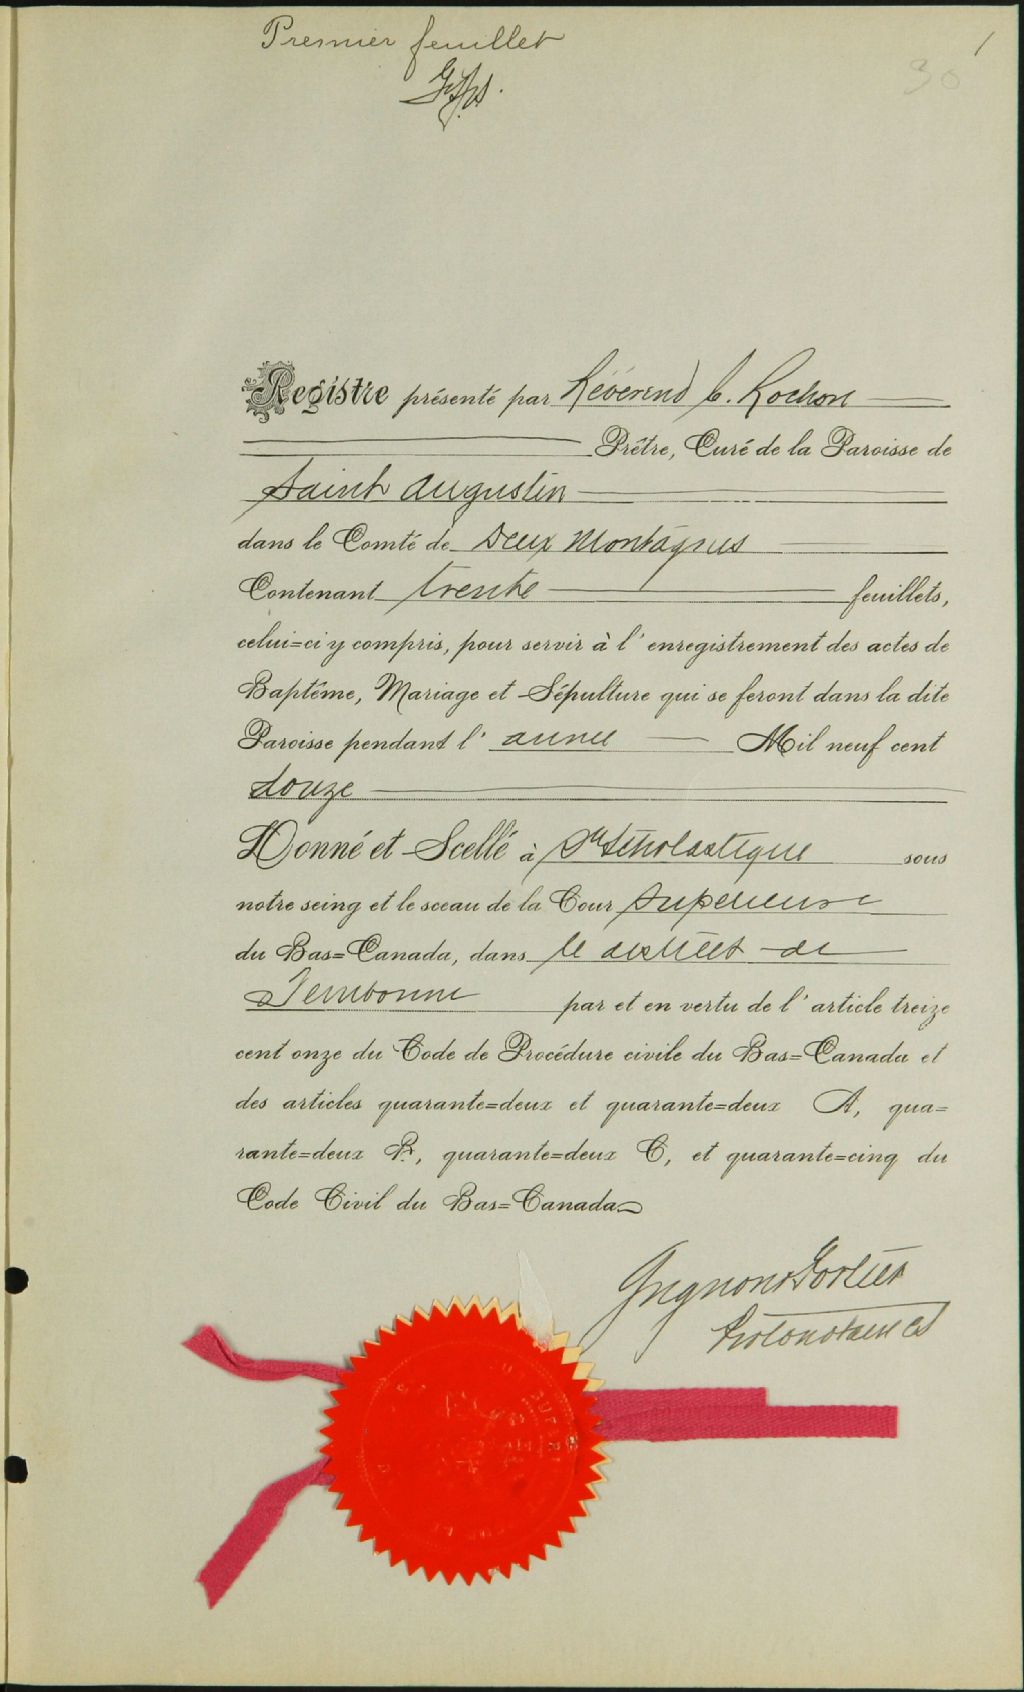 Premier feuillet
1
30
Registre présenté par Révérend C. Rochon
Prêtre, Curé de la Paroisse de
Saint Augustin
dans le Comté de Deux Montagnes
Contenant trente feuillets,
celui=ci y compris, pour servir à l'enregistrement des actes de
Baptême, Mariage et Sépulture qui se feront dans la dite
Paroisse pendant l'année Mil neuf cent
douze
Donné et Scellé à Ste Scholastique sous
notre seing et le sceau de la Cour Superieure
du Bas=Canada, dans le district de
Terrebonne par et en vertu de l'article treize
cent onze du Code de Procédure civile du Bas=Canada et
des articles quarante=deux et quarante=deux A, qua=
rante=deux B, quarante=deux C, et quarante=cinq du
Code Civil du Bas=Canada
Grignon & Fortier
Protonotaires